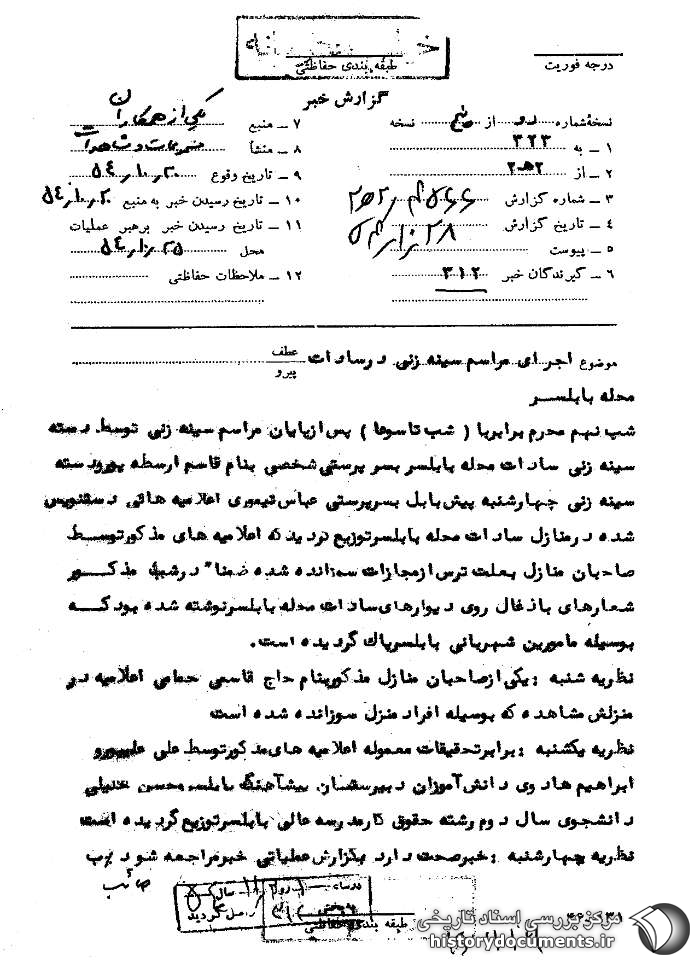 طبقه بندی حفاظتی
درجه فوریت
گزارش خبر
نسخه شماره دو از پنج نسخه
۱ - به ۳۲۳
۲ - از ۲ﻫ۲
۳ - شماره گزارش
۴ - تاریخ گزارش
۵ - پیوست
۶ - گیرندگان خبر ۳۱۲
۷ - منبع یکی از همکاران
۸ - منشأ
۹ - تاریخ وقوع ۲۰ر۱۰ر۵۴
۱۰ - تاریخ رسیدن خبر به منبع ۲۰ر۱۰ر۵۴
۱۱ - تاریخ رسیدن خبر برهبر عملیات
محل ۲۵ر۱۰ر۵۴
۱۲ - ملاحظات حفاظتی
موضوع اجرای مراسم سینه زنی در سادات عطف پیرو
محله بابلسر
شب نهم محرم برابر با ( شب تاسوعا ) پس از پایان مراسم سینه زنی توسط دسته
سینه زنی سادات محله بابلسر بسرپرستی شخصی بنام قاسم ارسطه پور و دسته
سینه زنی چهارشنبه پیش بابل بسرپرستی عباس تیموری اعلامیه هائی دستنویس
شده در منازل سادات محله بابلسر توزیع گردید که اعلامیه های مذکور توسط
صاحبان منازل بعلت ترس از مجازات سوزانده شده ضمنا" در شب مذکور
شعارهای با ذغال روی دیوارهای سادات محله بابلسر نوشته شده بود که
بوسیله مامورین شهربانی بابلسر پاک گردیده است.
نظریه شنبه : یکی از صاحبان منازل مذکور بنام حاج قاسمی حمامی اعلامیه در
منزلش مشاهده که بوسیله افراد منزل سوزانده شده است
نظریه یکشنبه : برابر تحقیقات معموله اعلامیه های مذکور توسط علی علیپور و
ابراهیم هادوی دانش آموزان دبیرستان پیشآهنگ بابلسر محسن خلیلی
دانشجوی سال دوم رشته حقوق کار مدرسه عالی بابلسر توزیع گردیده است
نظریه چهارشنبه : خبر صحت دارد بگزارش عملیاتی خبر مراجعه شود
طبقه بندی حفاظتی
مرکز بررسی اسناد تاریخی
historydocuments.ir